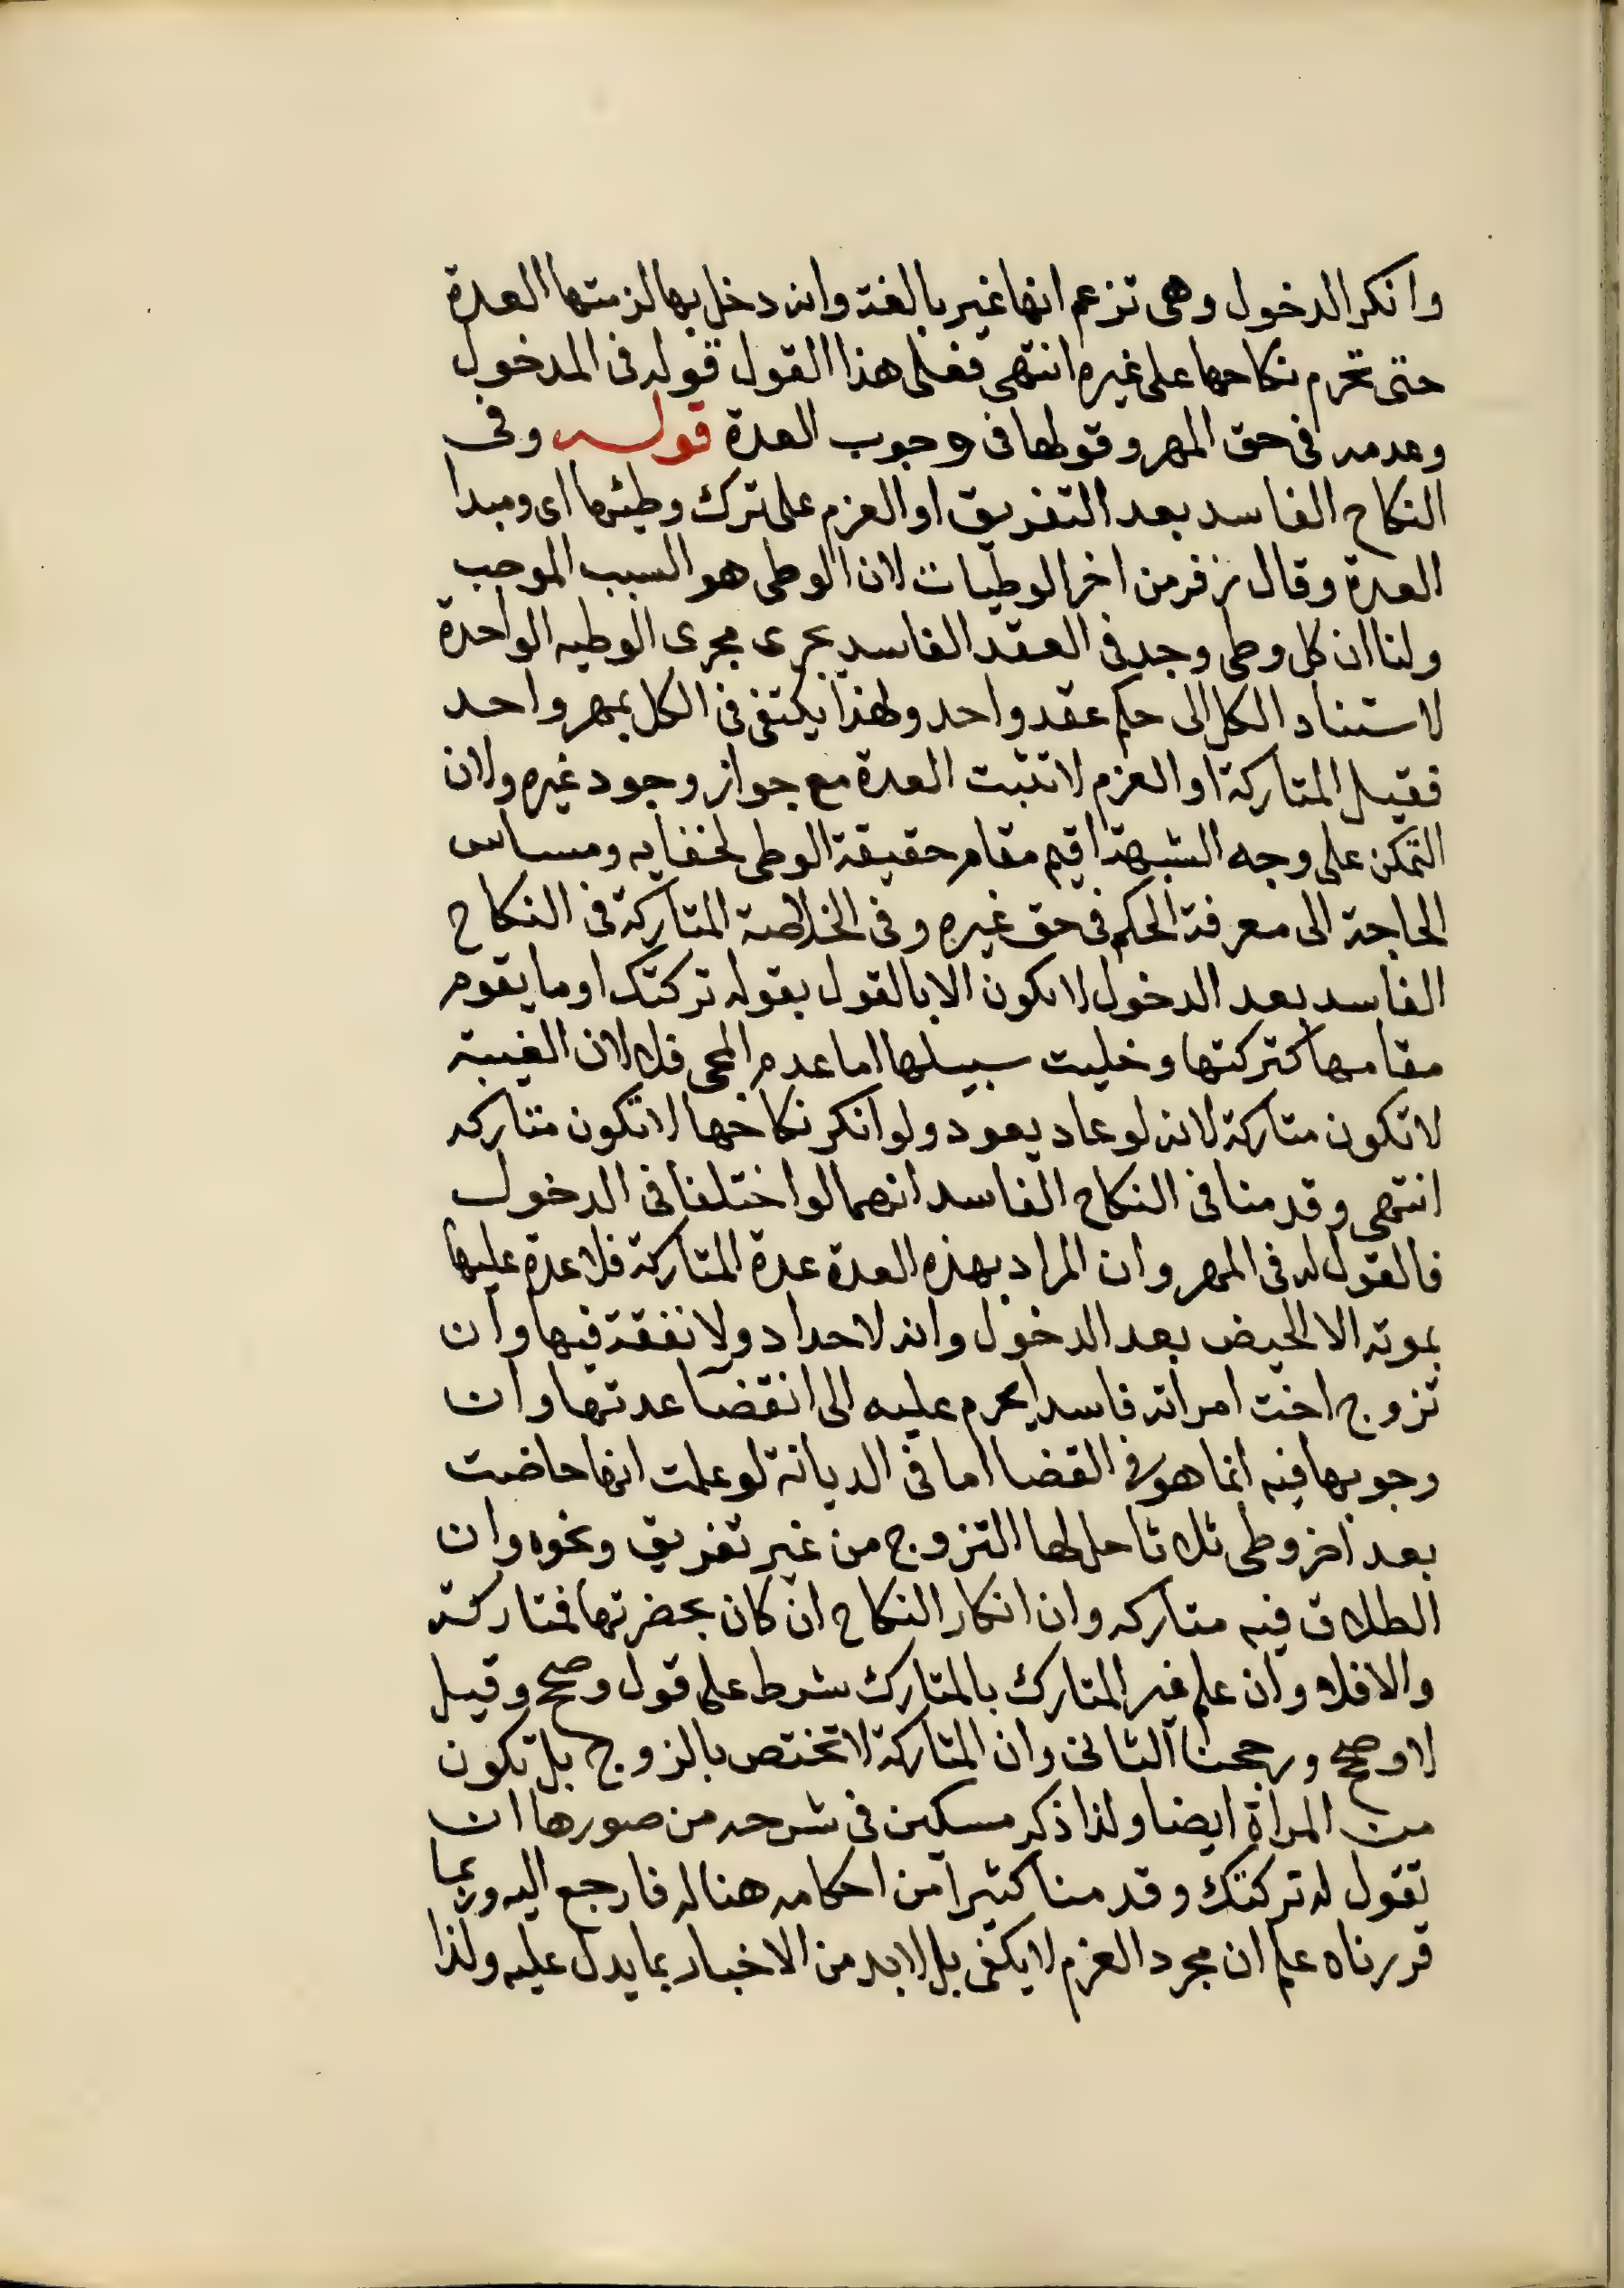 وانكر الدخول وهى تزعم انها غير بالغة وانه دخل بها لزمتها العدة
حتى تحرم نكاحها على غيره انتهى فعلى هذا القول قوله فى الدخول
وعدمه فى حق المهر وقولها فى وجوب العدة قوله وفى
النكاح الفاسد بعد التفريق او العزم على ترك وطئها اى ومبدا
العدة وقال زفر من اخر الوطيات لان الوطى هو السبب الموجب
ولنا ان كل وطى وجد فى العقد الفاسد يجرى مجرى الوطيه الواحدة
لاستناد الكل الى حكم عقد واحد ولهذا يكتفى فى الكل بمهر واحد
فقبل المتاركة او العزم لا تثبت العدة مع جواز وجود غيره ولان
التمكن على وجه الشبهة اقيم مقام حقيقة الوطى لخفايه ومساس
الحاجة الى معرفة الحكم فى حق غيره وفى الخلاصة المتاركة فى النكاح
الفاسد بعد الدخول لا يكون الا بالقول بقوله تركتك او ما يقوم
مقامها كتركتها وخليت سبيلها اما عدم المجى فلا لان الغيبة
لا تكون متاركة لانه لو عاد يعود ولو انكر نكاحها لا تكون متاركه
انتهى وقدمنا فى النكاح الفاسد انهما لو اختلفا فى الدخول
فالقول له فى المهر وان المراد بهذه العدة عدة المتاركة فلا عدة عليها
بموته الا الحيض بعد الدخول وانه لا حداد ولا نفقة فيها وان
تزوج اخت امراته فاسدا يحرم عليه الى انقضا عدتها وان
وجوبها فيه انما هو فى القضا اما فى الديانة لو علمت انها حاضت
بعد اخر وطى ثلاثا حل لها التزوج من غير تفريق ونحوه وان
الطلاق فيه متاركه وان انكار النكاح ان كان بحضرتها فمتاركة
والا فلا وان علم غير المتارك بالمتارك شرط على قول وصحح وقيل
لا وصحح ورجحنا الثانى وان المتاركة لا تختص بالزوج بل تكون
من المراة ايضا ولذا ذكر مسكين فى شرحه من صورها ان
تقول له تركتك وقدمنا كثيرا من احكامه هناله فارجع اليه وبما
قررناه علم ان مجرد العزم لا يكفى بل لا بد من الاخبار بما يدل عليه ولذا